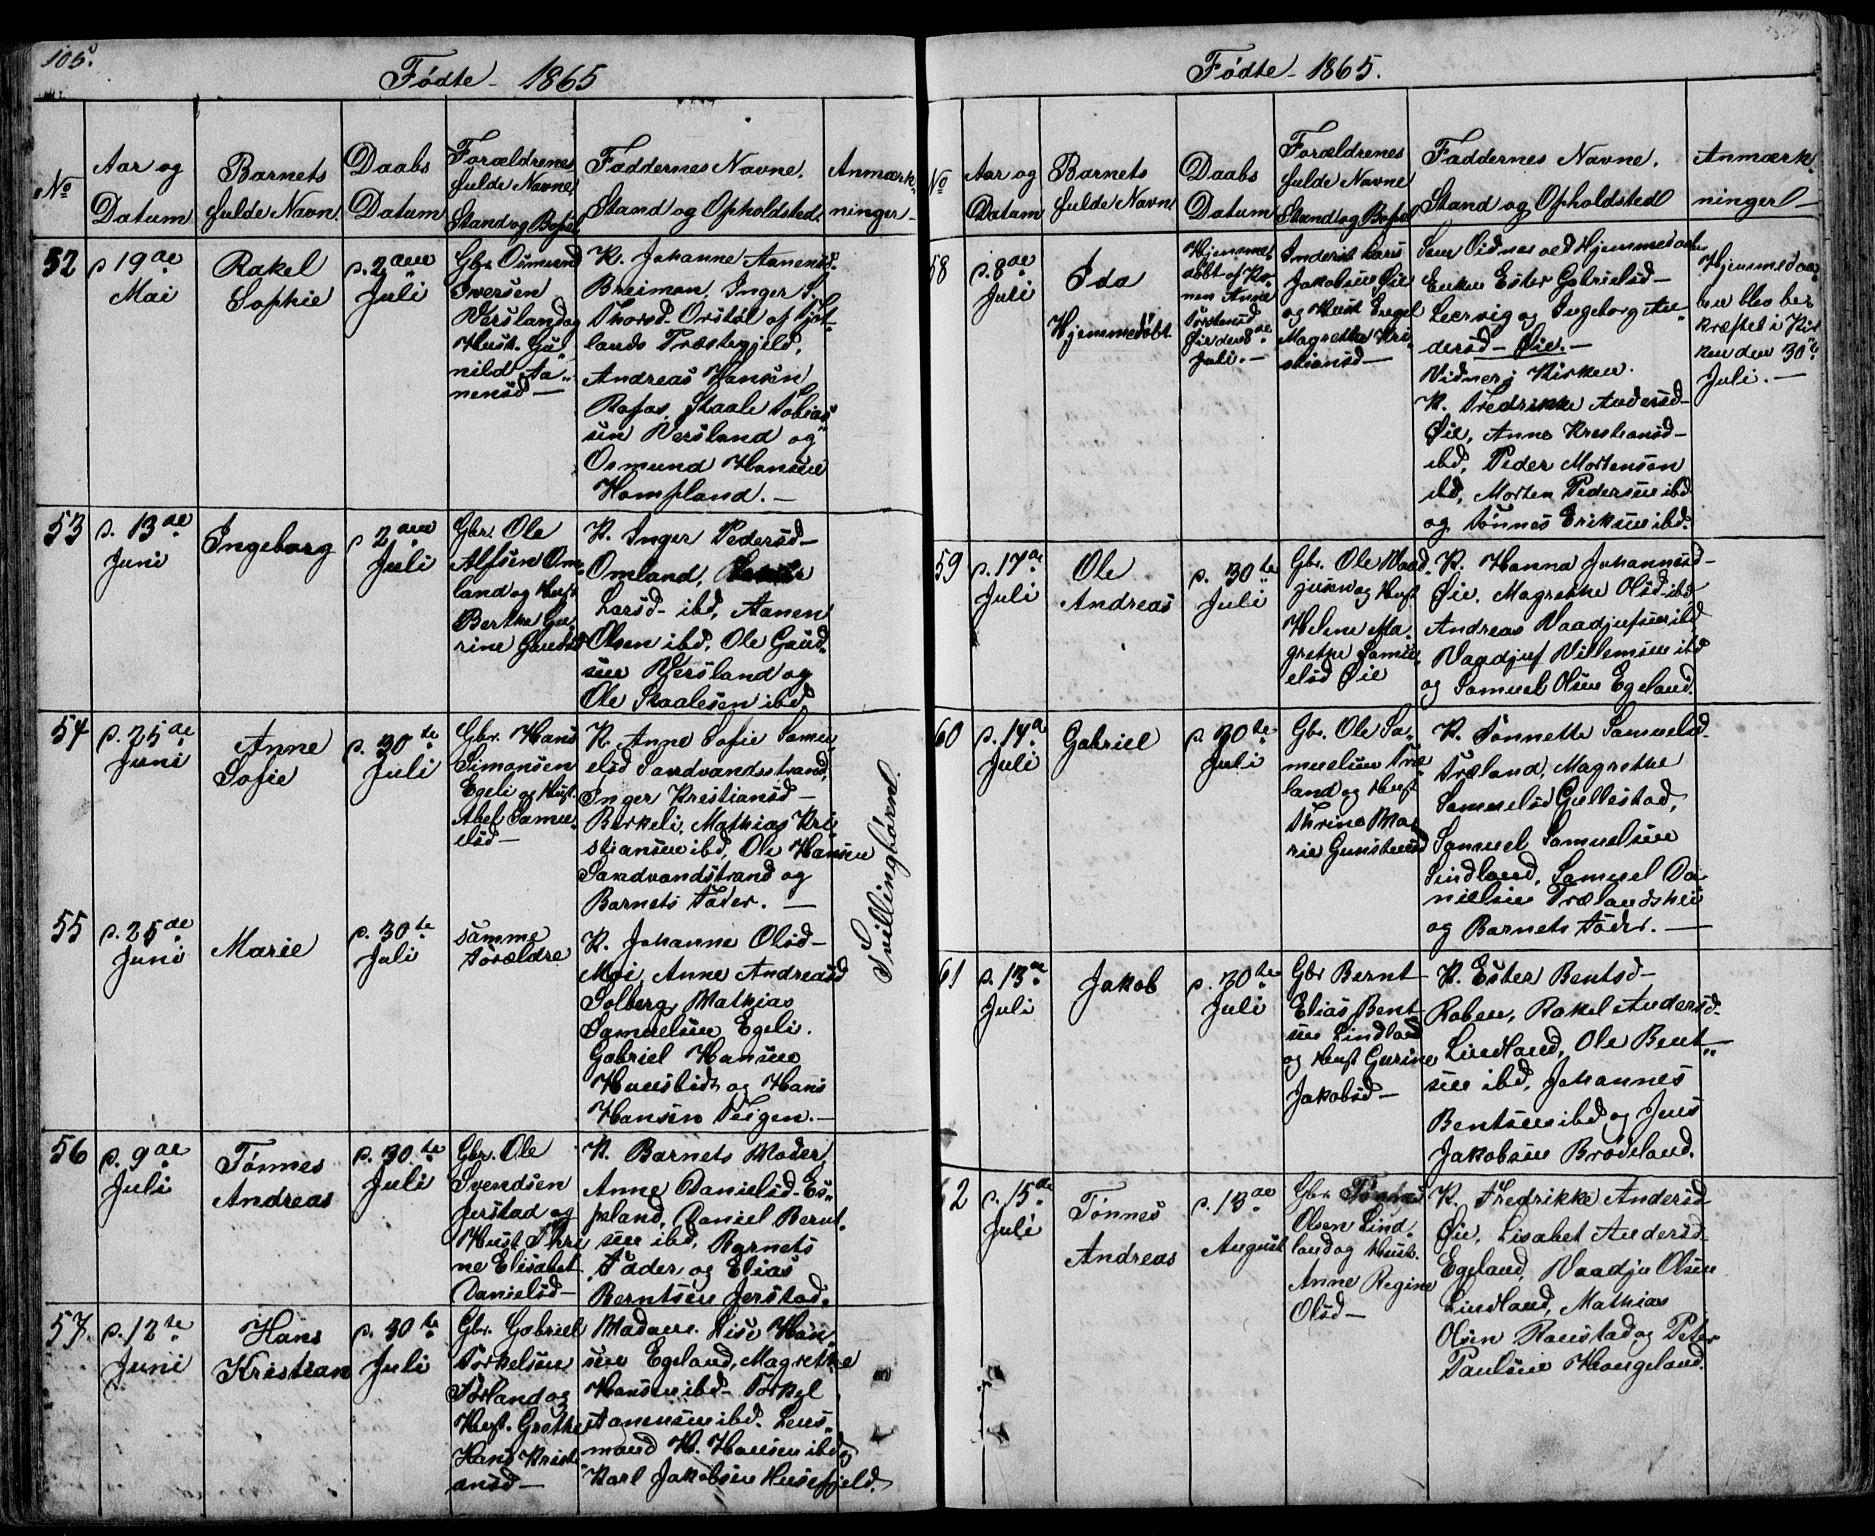 105.
Fødte - 1865
No
Aar og
Datum
Barnets
fulde Navn.
Daabs
Datum
Forældrenes
fulde Navne,
Stand og Bopæl
Faddernes Navne,
Stand og Opholdsted.
Anmærk-
ninger -
52
d. 19de
Mai
Rakel
Sophie
d. 2den
Juli
Gbr. Osmund
Iversen
Versland og
Hust. Gu-
nild Aa-
nensd -
K. Johanne Aanensd.
Breimon, Inger S.
Thorsd. Orstøl af Hjet-
lands Præstegjeld,
Andreas Hansen
Rafos, Staale Tobias-
sen Versland og
Osmund Hansen
Hompland. -
53
d. 13de
Juni
Ingeborg
d 2den
Juli
Gbr. Ole
Alfsen Om-
land og Hust
Berthe Gu-
rine Gaudsd
K. Inger Pedersd -
Omland,
Larsd - ibd, Aanen
Olsen ibd, Ole Gaud-
sen Versland og
Ole Staalesen ibd.
54
d. 25de
Juni
Anne
Sofie
d. 30te
Juli
Gbr. Hans
Simonsen
Egeli og Hust.
Abel Samu-
elsd -
K. Anne Sofie Samu-
elsd Sandvandsstrand,
Inger Krestiansd -
Birkeli, Mathias Kri-
stiansen ibd, Ole Hansen
Sandvandstrand og
Barnets Fader. -
Tvillingbørn.
55
d. 25de
Juni
Marie
d. 30te
Juli
samme
Forældre
K. Johanne Olsd -
Moi, Anne Andreasd
Solberg, Mathias
Samuelsen Egeli.
Gabriel Hansen
Hunsbedt og Hans
Hansen Teigen. -
56
d. 9de
Juli
Tønnes
Andreas
d. 30te
Juli
Gbr. Ole
Svendsen
Jerstad og
Hust. Thri
ne Elisabet
Danielsd -
K. Barnets Moder,
Anne Danielsd - Es-
peland, Daniel Bernt-
sen ibd, Barnets
Fader og Elias
Berntsen Jerstad.
57.
d. 12te
Juni
Hans
Kristian
d. 30te
Juli
Gbr. Gabriel
Torkelsen
Førland og
Hust. Grethe
Hans Kristi
ansd -
Madam. Lise Han-
sen Egeland, Magrethe
Hansen ibd - Torkel
Aanensen ibd. Lens-
mand H. Hansen ibd og
Karl Jakobsen Husefjeld.
Fødte - 1865.
No
Aar og
Datum
Barnets
fulde Navn
Daabs
Datum
Forældrenes
fulde Navne
Stand og Bopæl
Faddernes Navne.
Stand og Opholdsted
Anmærk-
ninger -
58
d. 8de
Juli
Ida
Hjemmedøbt
Hjemme-
døbt af Ko-
nen Anne
Torstensd
Øie den 8de
Juli. -
Inderst Lars
Jakobsen Øie
og Hust Engel
Magrethe Kri-
stiansd -
Som Vidner ved Hjemmedaaben
Enken Ester Gabrielsd -
Leervig og Ingeborg An-
dersd - Øie. -
Vidner i Kirken.
K. Fredrikke Andersd -
Øie, Anne Krestiansd -
ibd, Peder Mortensen
ibd, Morten Pedersen ibd
og Tønnes Eriksen ibd.
Hjemmedaa-
ben blev be-
kræftet i Kir
ken den 30te
Juli. -
59
d. 17de
Juli
Ole
Andreas
d. 30te
Juli
Gbr. Ole Vaad-
jusen og Hust
Helene Ma-
grethe Samu-
elsd Øie
K. Hanna Johannesd -
Øie, Magrethe Olsd - ibd
Andreas Vaadjusen ibd
Vaadjuf Villemsen ibd
og Samuel Olsen Egeland.
60
d. 14de
Juli
Gabriel
d. 30te
Juli
Gbr. Ole Sa-
muelsen Træ-
land og Hust
Thrine Ma-
rie Gunstensd
K. Tonnette Samuelsd.
Træland, Magrethe
Samuelsd Gullestad,
Samuel Samuelsen
Sindland, Samuel Da-
nielsen Trælandshei
og Barnets Fader. -
61
d. 13de
Juli
Jakob
d. 30te
Juli
Gbr Bernt
Elias Bent
sen Lindland
og Hust Gurine
Jakobsd -
K. Ester Bentsd -
Roben, Rakel Andersd.
Lindland, Ole Bent-
sen ibd, Johannes
Bentsen ibd og Jens
Jakobsen Brødeland.
62
d. 15de
Juli
Tønnes
Andreas
d. 13de
August
Gbr. Tønnes
Olsen Lind-
land og Hust.
Anne Regine
Olsd -
K. Fredrikke Andersd
Øie, Lisabet Andersd -
Egeland, Vaadju Olsen
Lindland, Mathias
Olsen Ronstad og Peter
Paulsen Haugeland.